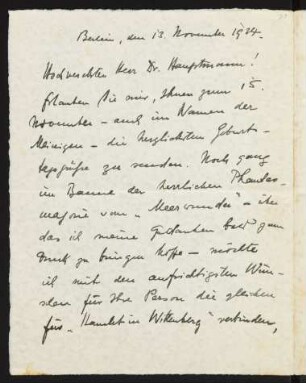 Berlin, den 13. November 1934.
Hochverehrter Herr Dr. Hauptmann!
Erlauben Sie mir, Ihnen zum 15.
November – auch im Namen der
Meinigen – die herzlichsten Geburts-
tagsgrüße zu senden. Noch ganz
im Banne der herrlichen Phantas-
magorie vom „Meerwunder“ – über
das ich meine Gedanken bald zum
Druck zu bringen hoffe – möchte
ich mit den aufrichtigsten Wün-
schen für Ihre Person die gleichen
für „Hamlet in Wittenberg“ verbinden,